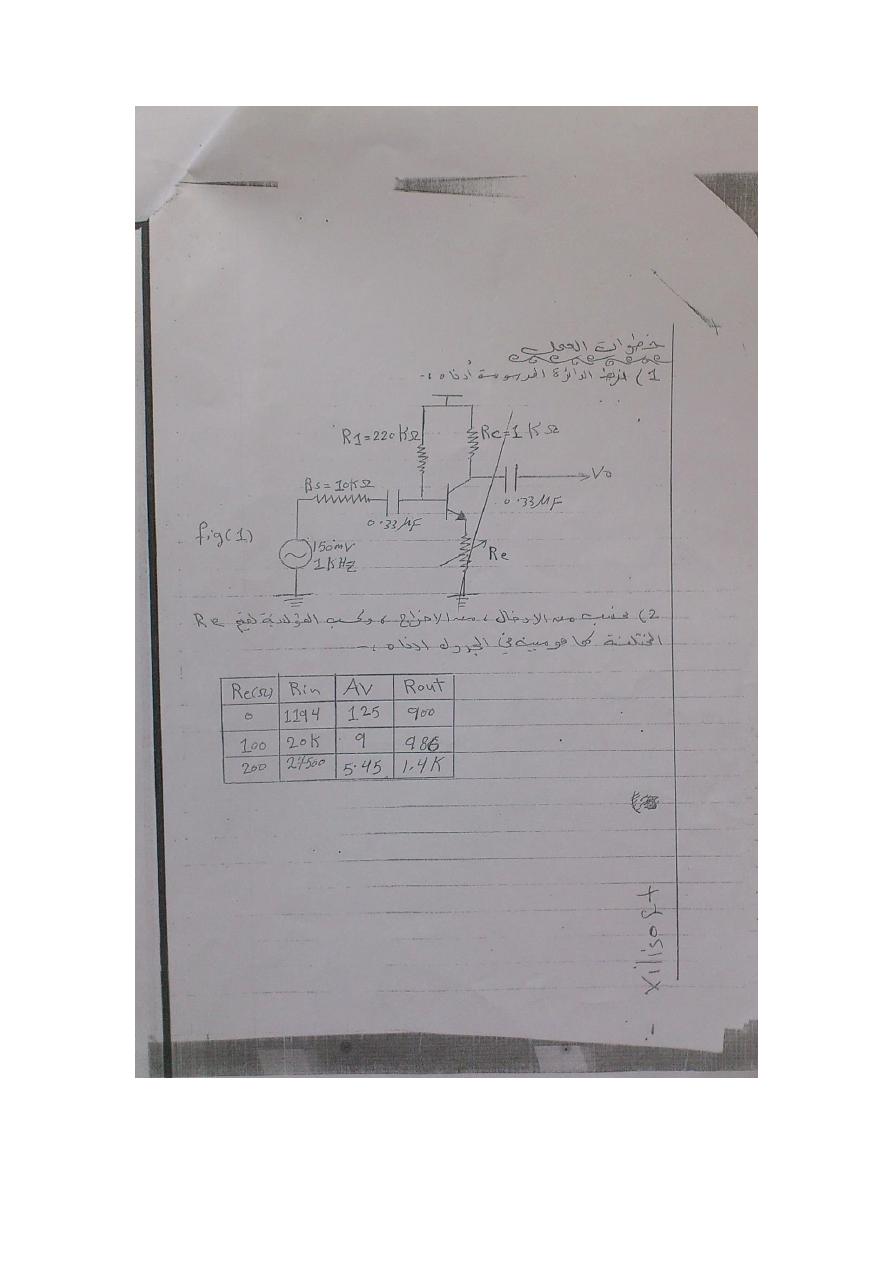 خطوات العمل
1) نربط الدائرة المرسومة أدناه :-
R1=220KΩ
Rc=1KΩ
Rs=10KΩ
Vo
0.33μF
0.33μF
fig(1)
150mV
1KHz
Re
2) نحسب ممانعة الادخال ، الاخراج ، وكسب الفولتية لقيم Re
المختلفة كما هو مبين في الجدول ادناه :-
Re(Ω) Rin AV Rout
0 1194 125 900
100 20K 9 986
200 27500 5.45 1.4K
Xilisoft